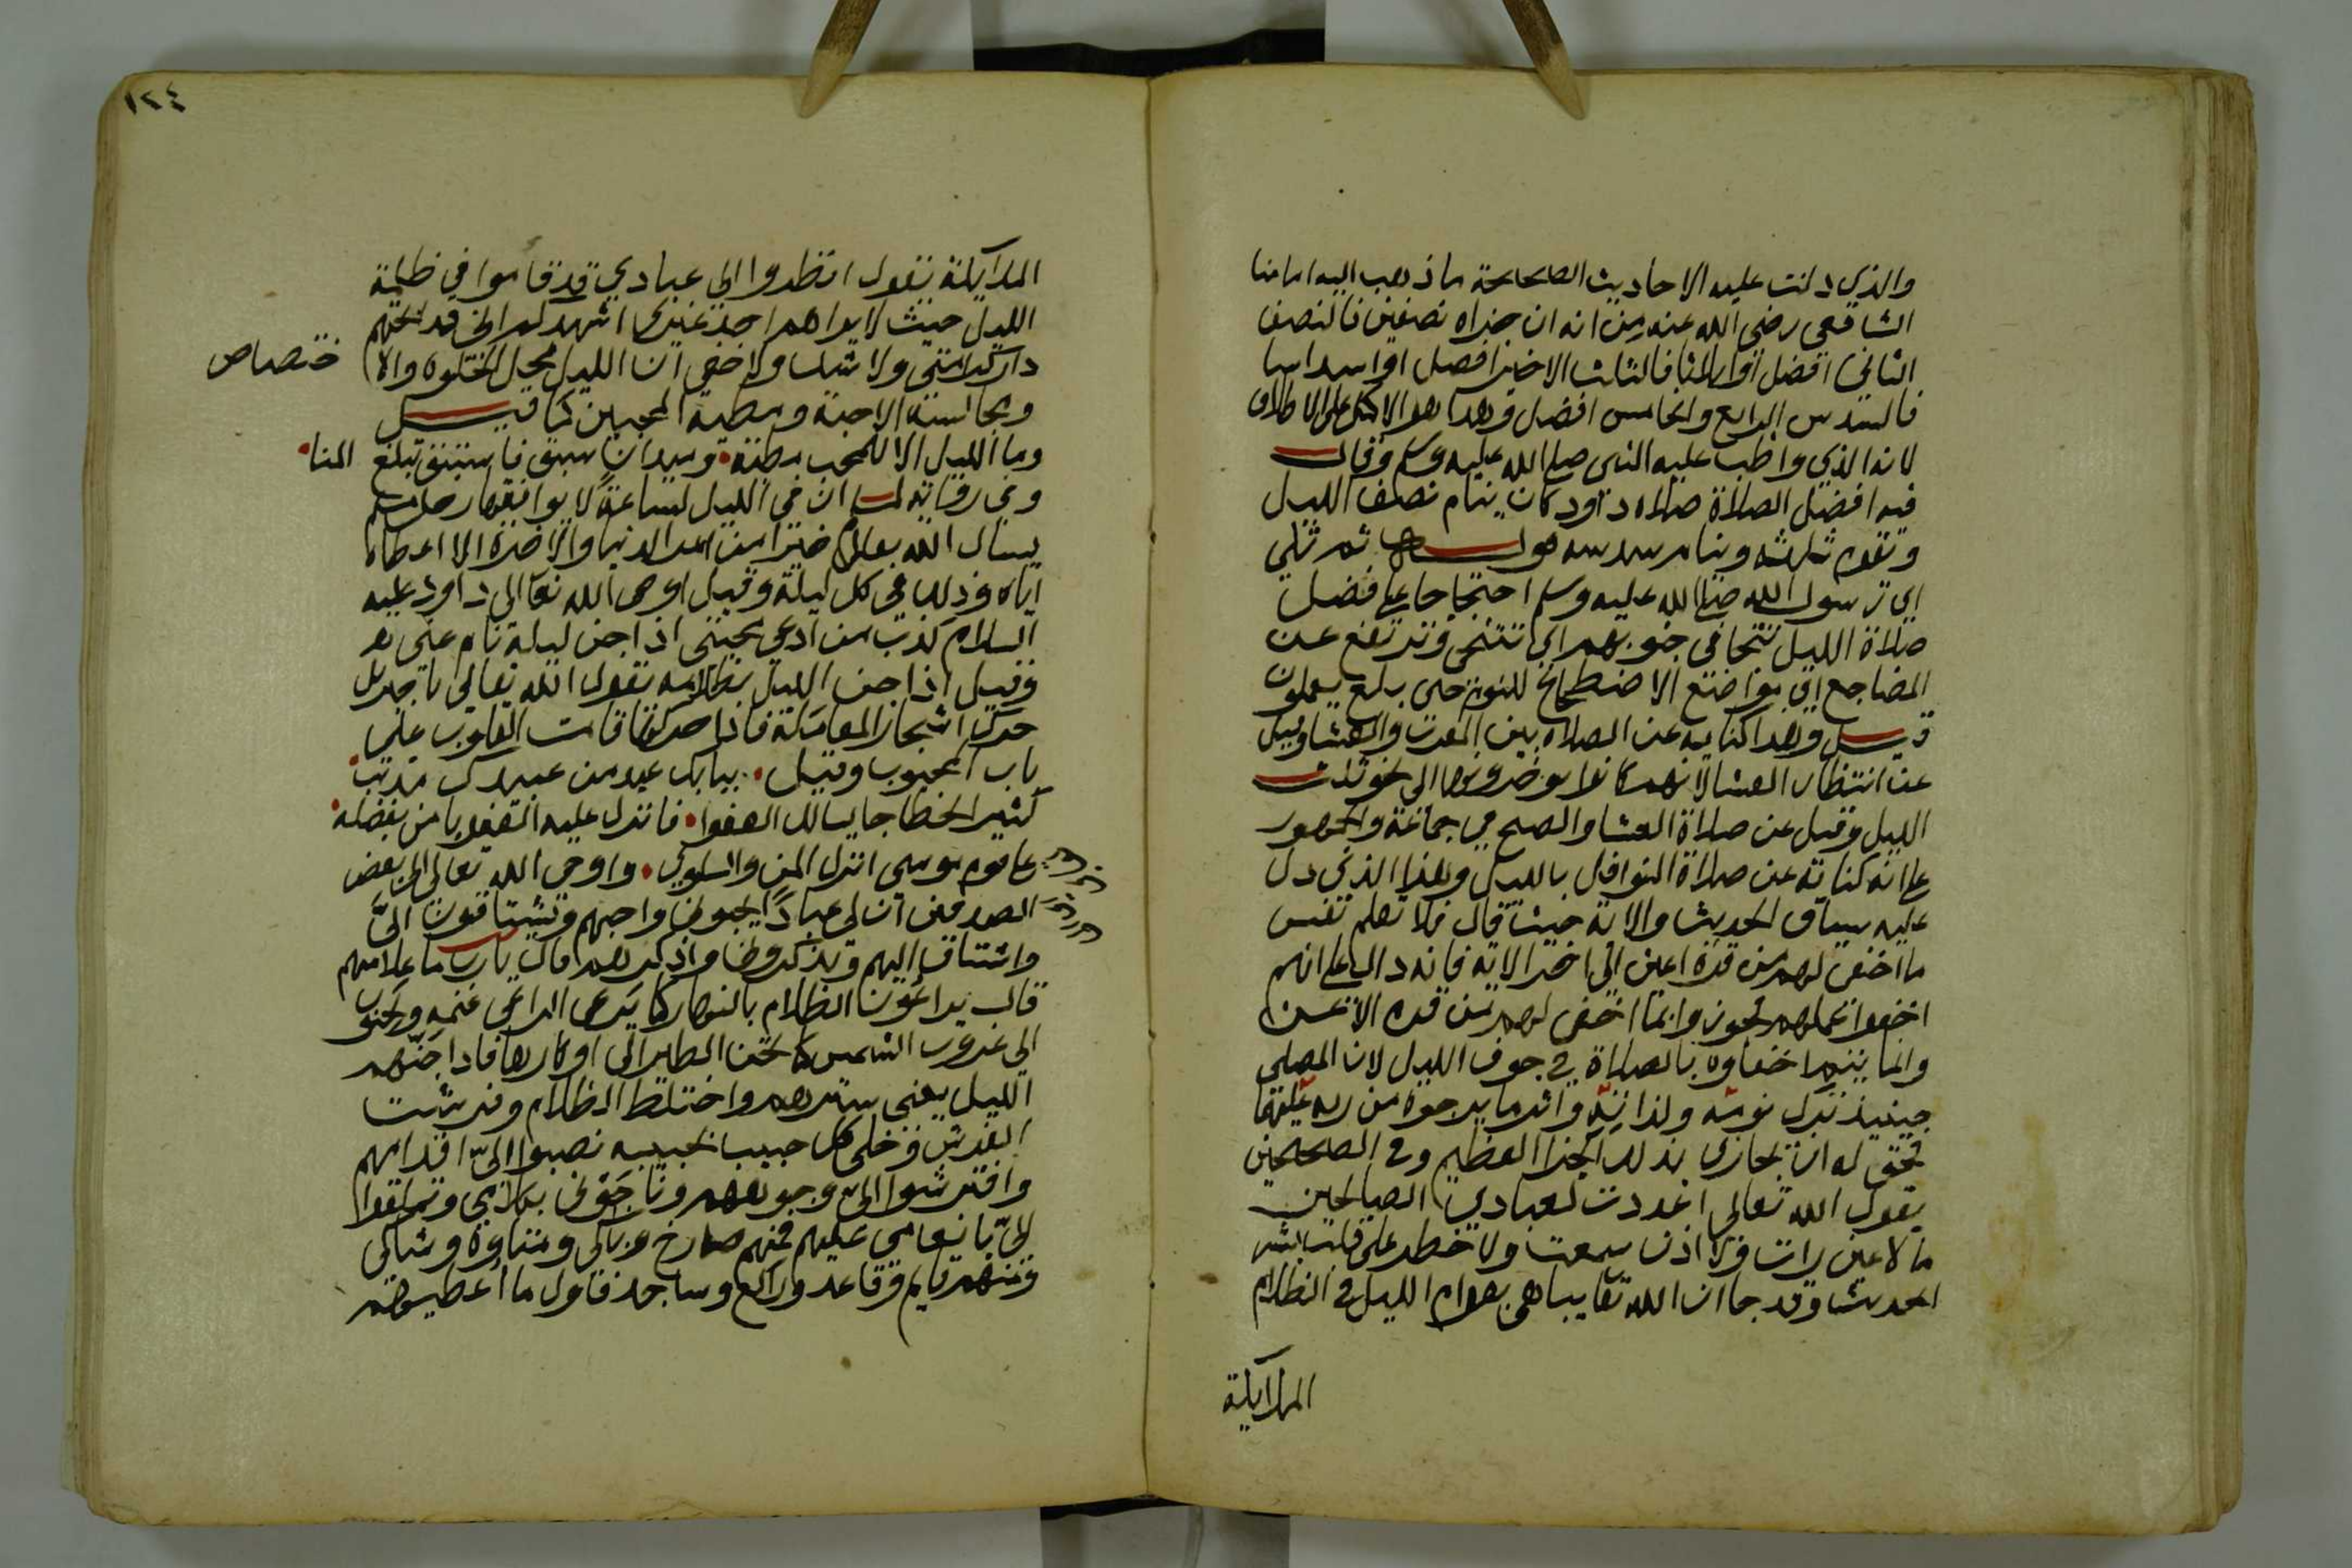 والذي دلت عليه الاحاديث الصحيحة ما ذهب اليه امامنا
الشافعي رضي الله عنه من انه ان جزاه نصفين فالنصف
الثاني افضل او اثلاثا فالثلث الاخير افضل او اسداسا
فالسدس الرابع والخامس افضل وهذا هو الاكمل على الاطلاق
لانه الذي واظب عليه النبي صلى الله عليه وسلم وقال
فيه افضل الصلاة صلاة داود كان ينام نصف الليل
وتقوم ثلثه وينام سدسه قوله ثم تلى
اي رسول الله صلى الله عليه وسلم احتجاجا على فضل
صلاة الليل تتجافى جنوبهم اي تتنحى وترتفع عن
المضاجع اي مواضع الاضطجاع للنوم حتى بلغ يعملون
قيل وهذا كناية عن الصلاه بين المغرب والعشا وقيل
عن انتظار العشا لانهم كانوا يوخرونها الى نحو ثلث
الليل وقيل عن صلاة العشا والصبح في جماعة والجمهور
على انه كناية عن صلاة النوافل بالليل وهذا الذي دل
عليه سياق الحديث والاية حيث قال فلا تعلم نفس
ما اخفي لهم من قرة اعين الى اخر الاية فانه دال على انهم
اخفوا عملهم فجوزوا بما اخفي لهم من قرة الاعين
وانما يتم اخفاوه بالصلاة في جوف الليل لان المصلي
حينيذ ترك نومه ولذاته واثر ما يرجوه من ربه عليها
فحق له ان يجازى بذلك الجزا العظيم وفي الصحيحين
يقول الله تعالى اعددت لعبادي الصالحين
ما لا عين رات ولا اذن سمعت ولا خطر على قلب بشر
الحديث وقد جا ان الله تعا يباهي بقوام الليل في الظلام
الملايكة
١٢٤
الملايكة يقول انظروا الى عبادي قد قاموا في ظلمة
الليل حيث لا يراهم احد غيري اشهدكم اني قد ابحتهم
دار كرامتي ولا شك ولا خفى ان الليل محل الخلوه والا
ختصاص
ومجالسة الاحبة ومطية المحبين كما قيل
وما الليل الا للمحب مطية وميدان سبق فاستبق تبلغ المنا
وفي رواية لمسلم ان في الليل لساعة لا يوافقها رجل مسلم
يسال الله تعالى خيرا من امر الدنيا والاخرة الا اعطاه
اياه وذلك في كل ليلة وقيل اوحى الله تعالى داود عليه
السلام كذب من ادعى محبتي اذا جن ليله نام عني
وقيل اذا جن الليل بظلامه يقول الله تعالى يا جبريل
حرك اشجار المعاملة فاذا حركها قامت القلوب على
باب المحبوب وقيل ببابك عبد من عبيدك مذنب
كثير الخطا جا يسالك العفوا فانزل عليه العفو يا من بفضله
على قوم موسى انزل المن والسلوى واوحى الله تعالى الى بعض
الصديقين ان لي عبادا يحبوني واحبهم ويشتاقون الي
واشتاق اليهم ويذكروني واذكرهم قال يا رب ما علامتهم
قال يراعون الظلام بالنهار كما يرعى الراعي غنمه ويحنون
الى غروب الشمس كما تحن الطير الى اوكارها فاذا جنهم
الليل يعني سترهم واختلط الظلام وفرشت
الفرش وخلى كل حبيب بحبيبه نصبوا الي اقدامهم
وافترشوا الي وجوههم وناجوني بكلامي وتملقوا
الي بانعامي عليهم فمنهم صارخ وباكي ومتاوه وشاكي
ومنهم قايم وقاعد وراكع وساجد فاول ما اعطيهم